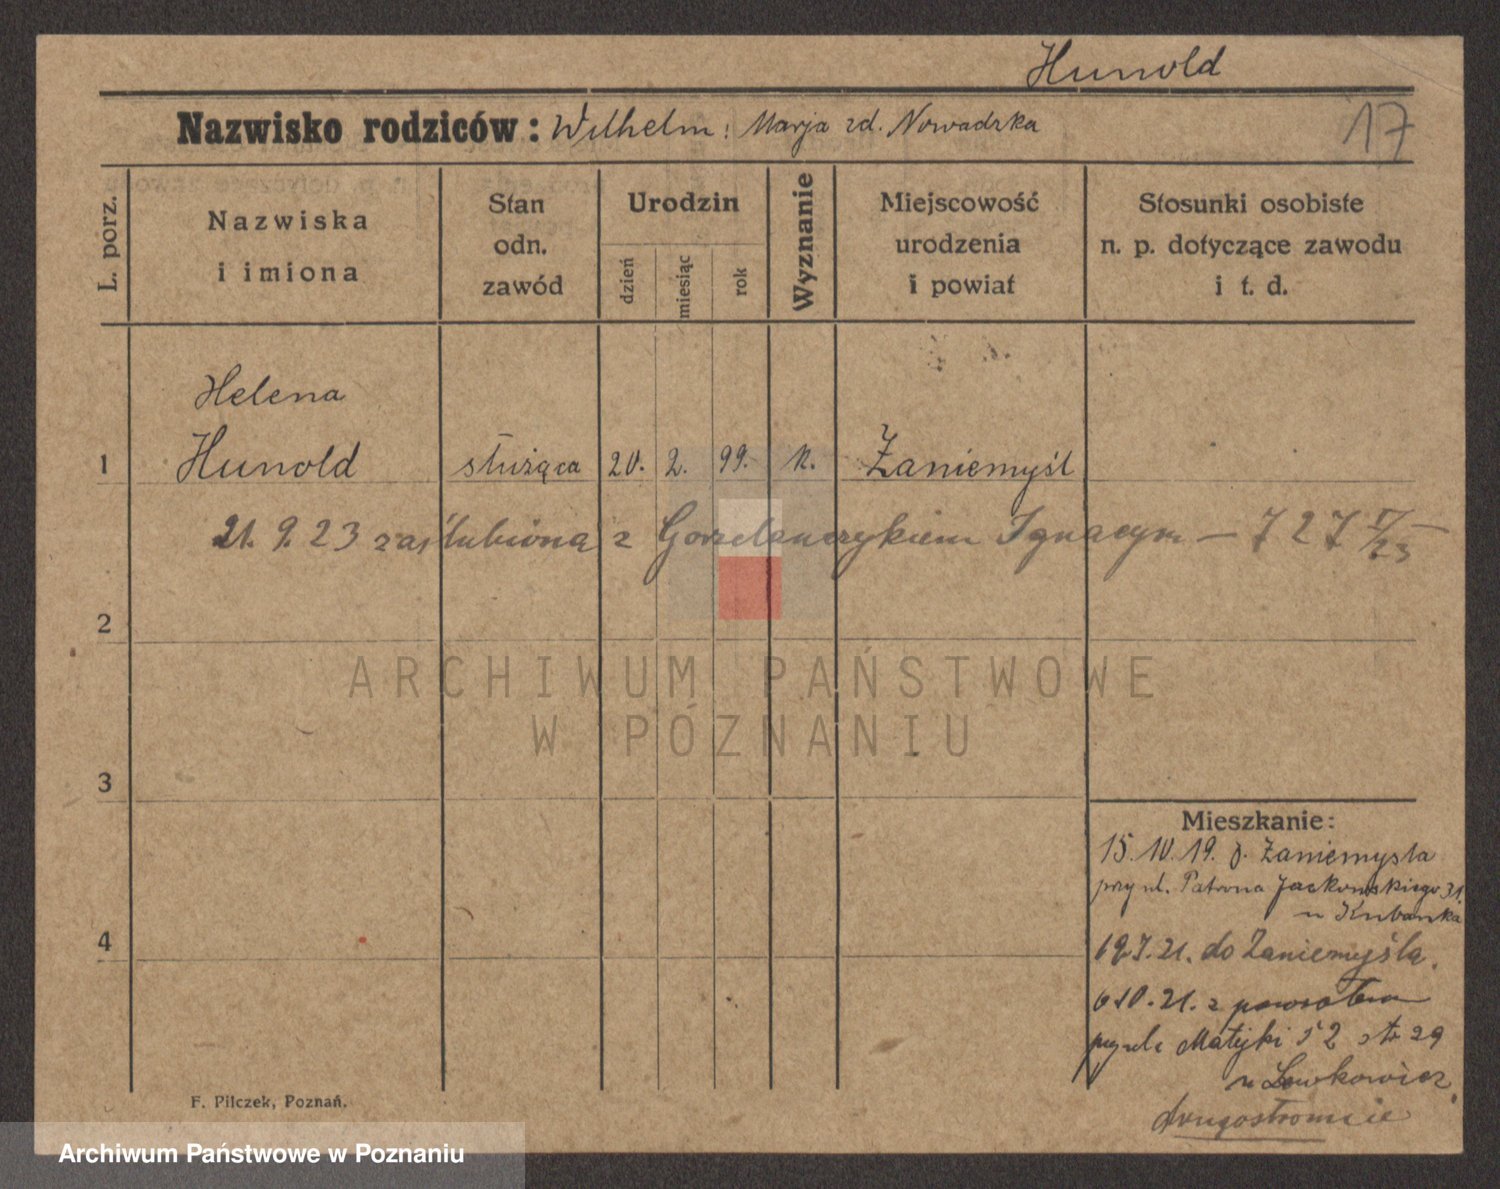 Hunold
17
Nazwisko rodziców: Wilhelm i Marja zd. Nowadzka
L. porz.
Nazwiska i imiona
Stan odn. zawód
Urodzin
dzień
miesiąc
rok
Wyznanie
Miejscowość urodzenia i powiat
Stosunki osobiste n. p. dotyczące zawodu i t. d.
Helena
1 Hunold służąca 20. 2. 99. k. Żaniemyśl
21. 9. 23 zaślubiona z Gorzelanczykiem Ignacym — 727
2
ARCHIWUM PAŃSTWOWE
W POZNANIU
3
4
Mieszkanie:
15.10.19. z. Zaniemysla
przy ul. Patrona Jackowskiego 31.
u Kubanka
21. do Zaniemyśla.
10.21. z powrotem
Matejki 52 29
u Lewkowicz
drugostronnie
F. Pilczek, Poznań.
Archiwum Państwowe w Poznaniu